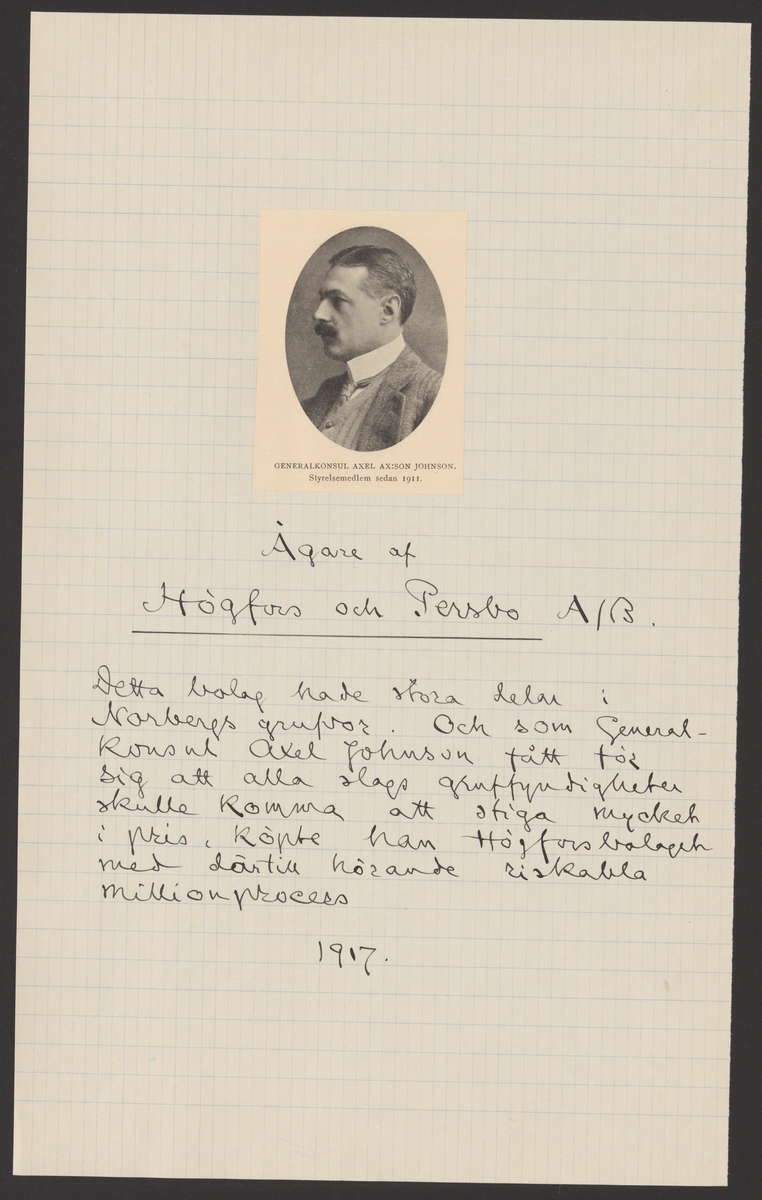 GENERALKONSUL AXEL AX:SON JOHNSON.
Styrelsemedlem sedan 1911.
Ägare af
Högfors och Persbo A/B.
Detta bolag hade stora delar i
Norbergs grufvor. Och som General-
konsul Axel Johnson fått för
sig att alla slags gruffyndigheter
skulle komma att stiga mycket
i pris, köpte han Högforsbolaget
med därtill hörande riskabla
millionprocess
1917.